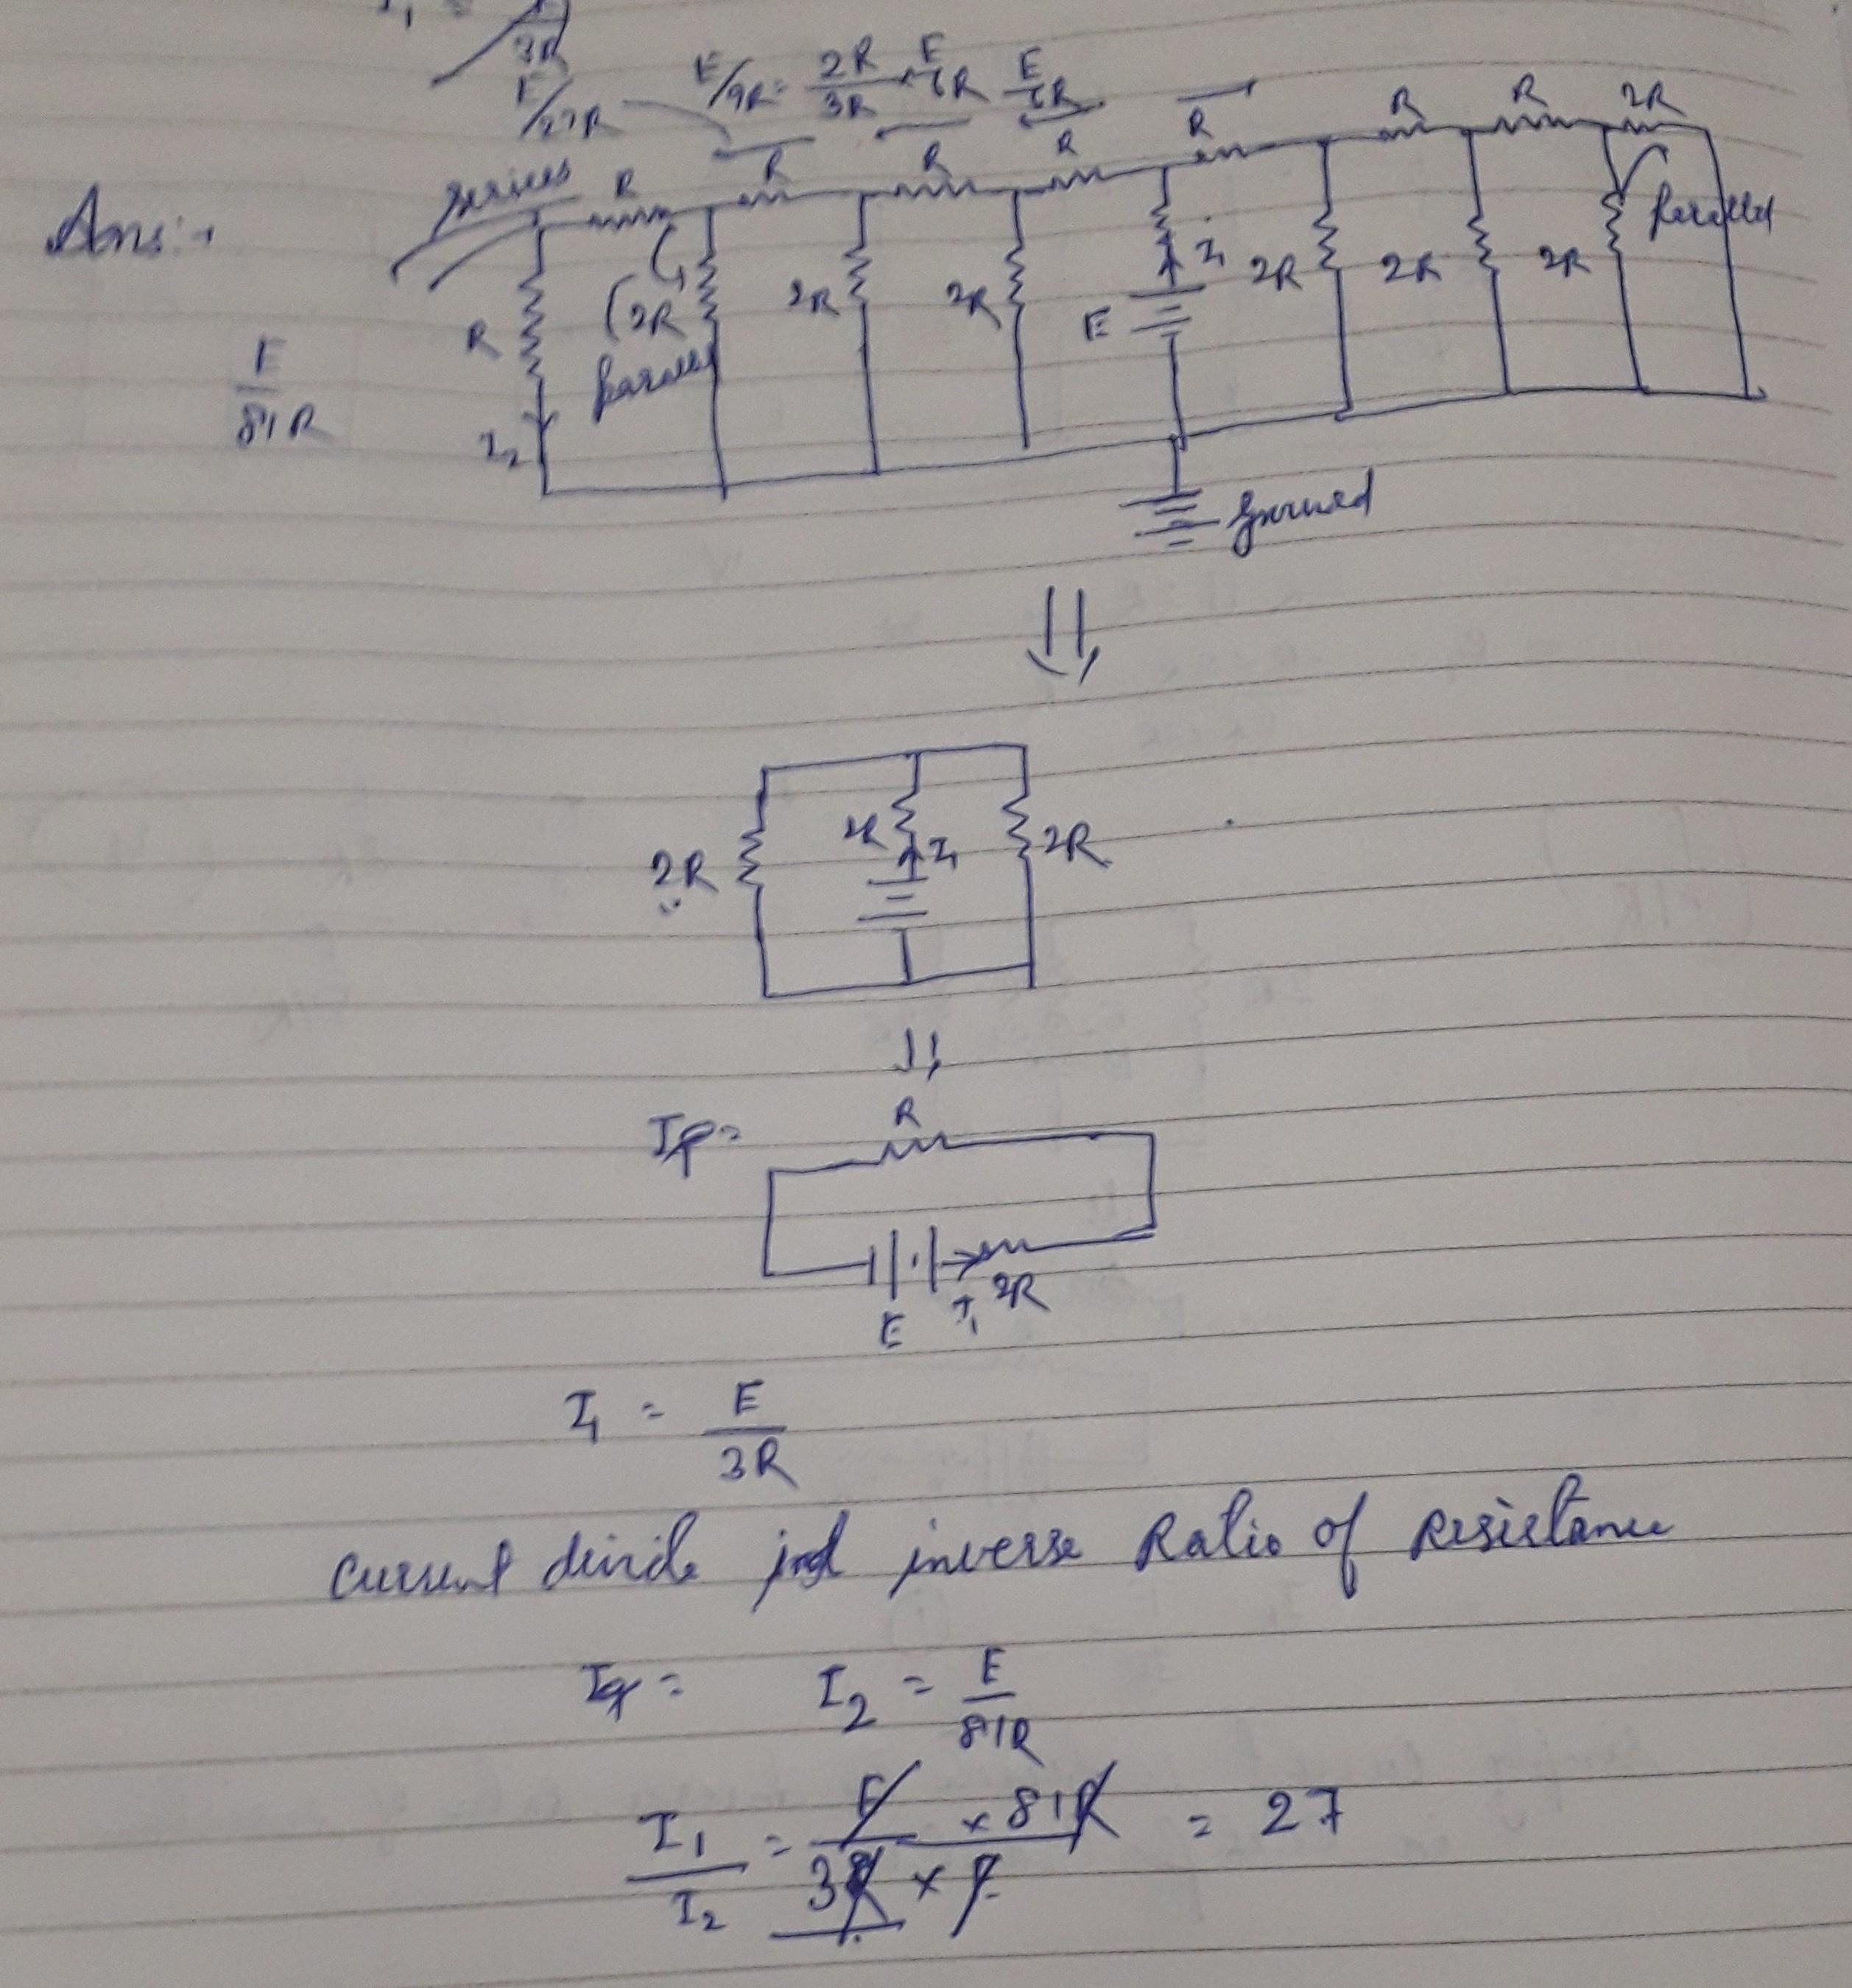 I₁ =
3R
E/27R
E/9R = 2R/3R × E/6R E/6R
R R R 2R
series R R R R
Ans:-
Parallel
R (2R 2R 2R E I₁ 2R 2R 2R
Parallel
E/81R
I₂
Ground
2R 2R I₁ 2R
R
E I₁ 2R
I₁ = E/3R
current divide inverse Ratio of Resistance
I₂ = E/81R
I₁/I₂ = E × 81R / 3R × E = 27